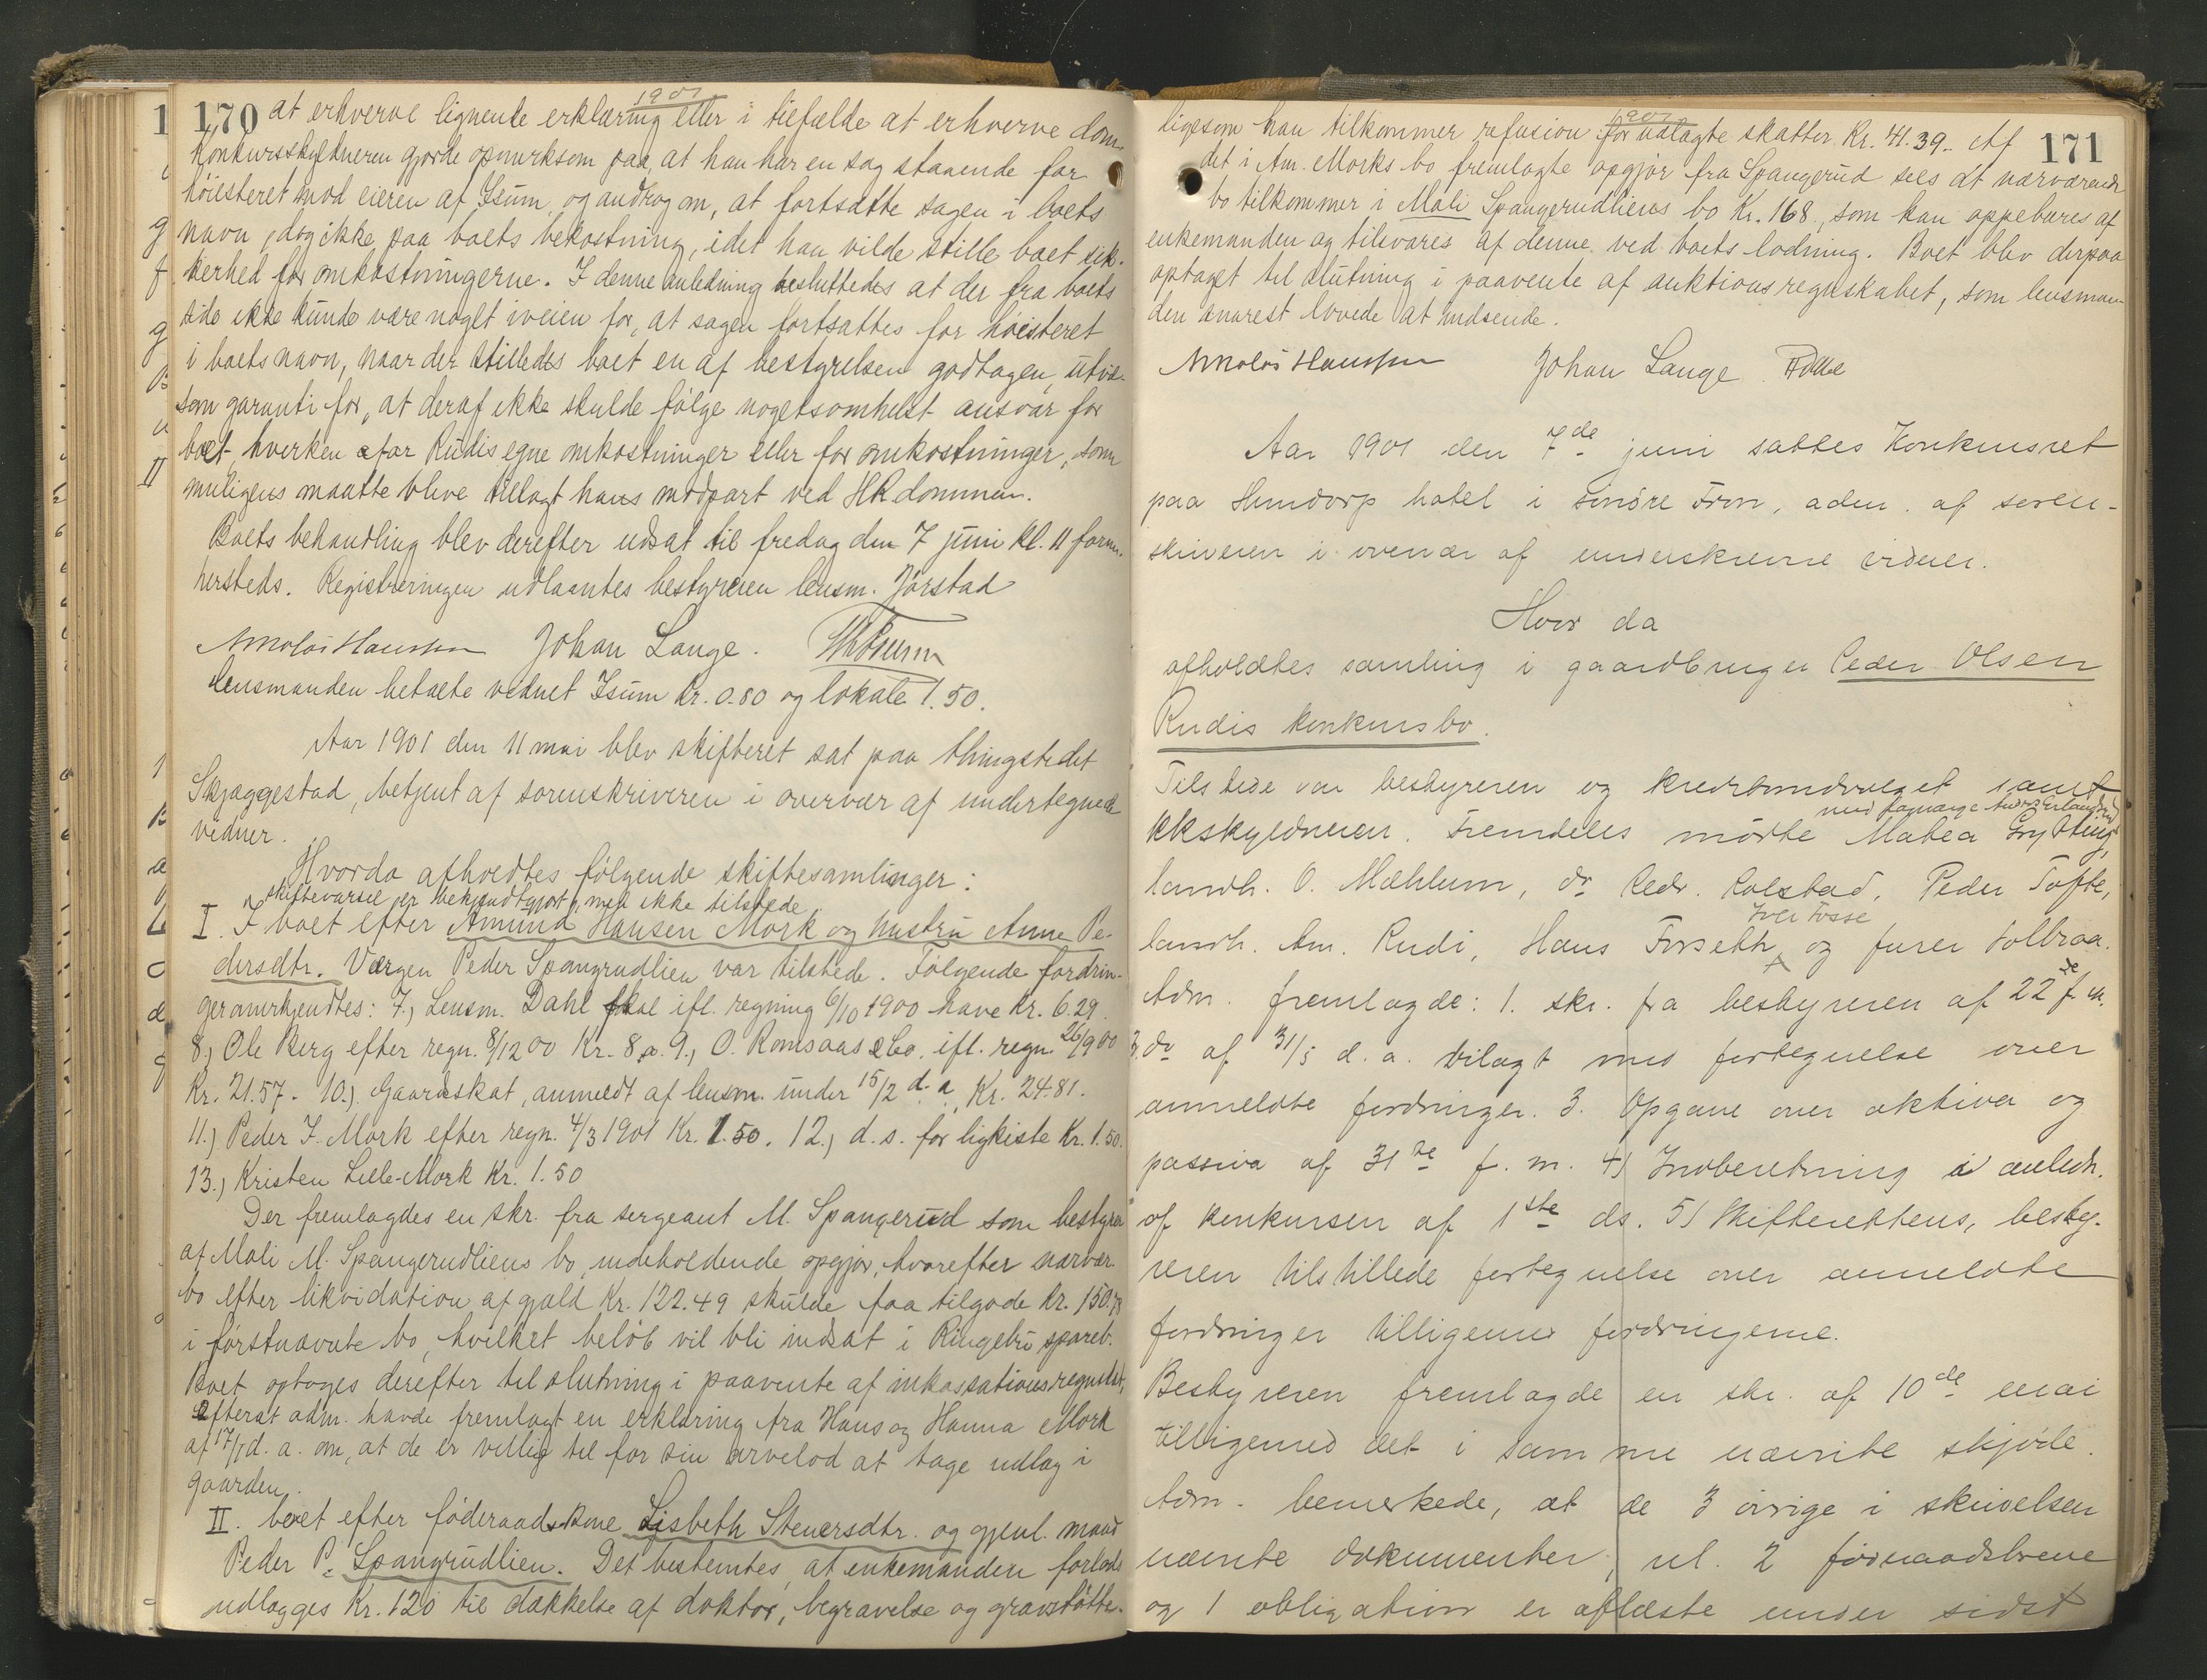 1901
170 at erhverve lignende erklæring eller i tilfælde at erhverve dom.
Konkursskyldneren gjorde opmerksom paa, at han har en sag staaende for
höiesteret mod eieren af Isum og androg om, at fortsætte sagen i boets
navn, dog ikke paa boets bekostning, idet han vilde stille boet sik-
kerhed for omkostningerne. I denne anledning besluttedes at der fra boets
side ikke kunde være noget iveien for, at sagen fortsattes for höiesteret
i boets navn, naar der stilledes boet en af bestyrelsen godtagen, utvs-
som garanti for, at deraf ikke skulde fölge nogetsomhelst ansvar for
boet hverken for Rudis egne omkostninger eller for omkostninger, som
muligens maatte blive tillagt hans modpart ved HRdommen.
Boets behandling blev derefter udsat til fredag den 7 juni kl. 11 form.
hersteds. Registreringen udlaantes bestyreren lensm. Jörstad
Nikolai Hanssen Johan Lange.
lensmanden betalte vidnet Isum kr. 0.80 og lokale 1.50.
Aar 1901 den 11 mai blev skifteret sat paa thingstedet
Skjæggestad, betjent af sorenskriveren i overvær af undertegnede
vidner.
Hvorda afholdtes följende skiftesamlinger:
skiftevarsel er bekjendtgjort, men ikke tilstede
I I boet efter Amund Hansen Mork og hustru Anne Pe-
dersdtr. Værgen Peder Spangrudlien var tilstede. Fölgende fordrin-
ger anerkjendtes: 7.) Lensm. Dahl skal ifl. regning 6/10 1900 have kr. 6.29.
8.) Ole Berg efter regn. 8/12 00 Kr. 8.0. 9.) O. Romsaas & Co. ifl. regn. 26/9 00
Kr. 21.57. 10.) Gaardskat, anmeldt af lensm. under 15/2 d. a. Kr. 24.81.
11.) Peder I. Mork efter regn. 4/3 1901 Kr. 1.50. 12.) d. s. for ligkiste Kr. 1.50.
13.) Kristen Lille-Mork Kr. 1.50
Der fremlagdes en skr. fra sergeant M. Spangerud som bestyrer
af Mali M. Spangerudliens bo, indeholdende opgjör, hvorefter nærvær.
bo efter likvidation af gjæld Kr. 122.49 skulde faa tilgode Kr. 150.78
i förstnævnte bo, hvilket belöb vil bli indsat i Ringebu spareb.
Boet optoges derefter til slutning i paavente af inkassationsregnskab,
efterat adm. havde fremlagt en erklæring fra Hans og Hanna Mork
af 17/1 d. a. om, at de er villig til for sin arvelod at tage udlæg i
gaarden.
II. boet efter föderaadskone Lisbeth Stenersdtr. og gjenl. mand
Peder P. Spangrudlien. Det bestemtes, at enkemanden forlods
udlægges Kr. 120 til dækkelse af doktor, begravelse og gravstötte.
1901
171
ligesom han tilkommer refusion for udlagte skatter Kr. 41.39. Af
det i Am. Morks bo fremlagte opgjör fra Spangerud sees at nærværende
bo tilkommer i Mali Spangerudliens bo Kr. 168, som kan oppebæres af
enkemanden og tilsvares af denne ved boets lodning. Boet blev derpaa
optaget til slutning i paavente af auktionsregnskabet, som lensman-
den snarest lovede at indsende.
Nikolai Hanssen Johan Lange
Aar 1901 den 7de juni sattes Konkursret
paa Hundorp hotel i söndre Fron, adm. af soren-
skriveren i overvær af underskrevne vidner.
Hvor da
afholdtes samling i gaardbruger Peder Olsen
Rudis konkursbo.
Tilstede var bestyreren og kreditorudvalget samt
med lagværge
kkskyldneren. Fremdeles mödte Mathea Grytting,
landh. O. Mæhlum, do Peder Kolstad, Peder Tofte,
Iver Fosse
landh. Am. Rudi, Hans Forseth og furer Solbraa.
Adm. fremlagde: 1. skr. fra bestyreren af 22de f. m.
2. do af 31/5 d. a. bilagt med fortegnelse over
anmeldte fordringer. 3. Opgave over aktiva og
passiva af 31te f. m. 4) Indberetning i anledn.
af konkursen af 1ste ds. 5) Skifterettens, besty-
reren tilstillede fortegnelse over anmeldte
fordringer tilligemed fordringerne.
Bestyreren fremlagde en skr. af 10de mai
tilligemed det i samme nævnte skjöde.
Adm. bemerkede, at de 3 övrige i skrivelsen
nævnte dokumenter, nl. 2 föderaadsbreve
og 1 obligation er aflæste under sidst